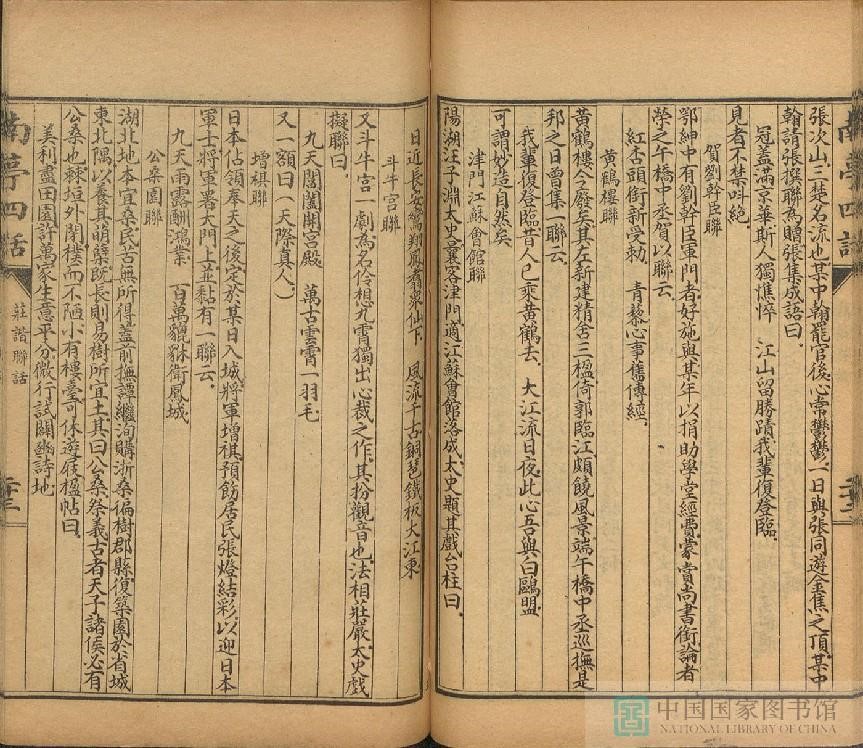 張次山三楚名流也某中翰罷官後心常鬱鬱一日與張同遊金焦之頂某中
翰請張撰聯為贈張集成語曰
冠蓋滿京華斯人獨憔悴　江山留勝蹟我輩復登臨
見者不禁叫絶
賀劉幹臣聯
鄂紳中有劉幹臣軍門者好施與某年以捐助學堂經費蒙賞尚書銜論者
榮之午橋中丞賀以聯云
紅古頭銜新受勅　青藜心事舊傳經
黃鶴樓聯
黃鶴樓今廢矣其左新建精舍三楹倚郭臨江頗饒風景端午橋中丞巡撫是
邦之日曾集一聯云
我輩復登臨昔人已乘黃鶴去　大江流日夜此心吾與白鷗盟
可謂妙造自然矣
津門江蘇會館聯
陽湖汪子淵太史曩客津門適江蘇會館落成太史題其戲台柱曰
南亭四話
二十二
日近長安鸞翔鳳翥衆仙下　風流千古銅琶鐵板大江東
斗牛宮聯
又斗牛宮一劇為名伶想九霄獨出心裁之作其扮觀音也法相莊嚴太史戲
擬聯曰
九天閶闔開宮殿　萬古雲霄一羽毛
又一額曰（天際真人）
增祺聯
日本佔領奉天之後定於某日入城將軍增祺預飭居民張燈結彩以迎日本
軍士將軍署大門上並黏有一聯云
九天雨露酬鴻業　百萬貔貅衛鳳城
公桑園聯
湖北地本宜桑民苦無所得蓋前撫譚繼洵購浙桑偏樹郡縣復築園於省城
東北隅以養其萌蘖既長則易樹所宜土其曰公桑祭義古者天子諸侯必有
公桑也棘垣外閉樸而不陋小有樓臺可休遊屐楹帖曰
美利盡田園許萬家生意平分微行試闢豳詩地
南亭四話
莊諧聯話
二十三
中国国家图书馆
NATIONAL LIBRARY OF CHINA